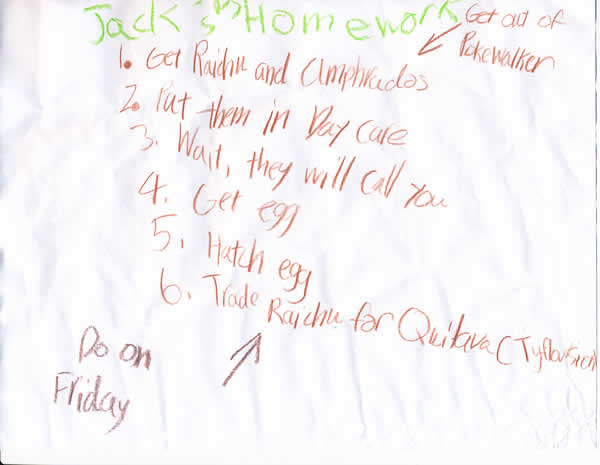 Jack's DS Homework
Get out of
Pokewalker
1. Get Raichu and Amphrados
2. Put them in Day care
3. Wait, they will call you
4. Get egg
5. Hatch egg
6. Trade Raichu for Quilava (
Do on
Friday